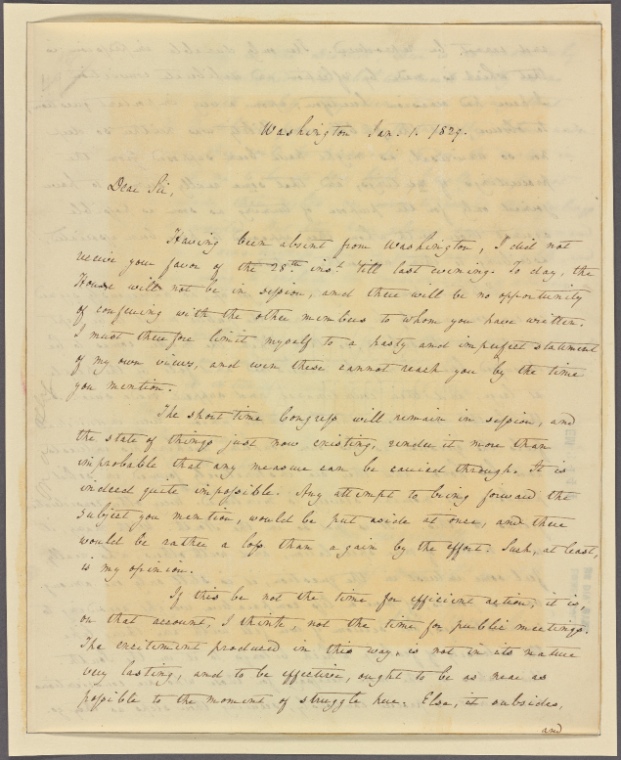 Washington Jan. 1. 1829.
Dear Sir,
Having been absent from Washington, I did not
receive your favor of the 28th inst. till last evening. To day, the
House will not be in session, and there will be no opportunity
of conferring with the other members to whom you have written.
I must therefore limit myself to a hasty and imperfect statement
of my own views, and even these cannot reach you by the time
you mention.
The short time Congress will remain in session, and
the state of things just now existing, render it more than
improbable that any measure can be carried through. It is
indeed quite impossible. Any attempt to bring forward the
subject you mention, would be put aside at once, and there
would be rather a loss than a gain by the effort. Such, at least,
is my opinion.
If this be not the time for efficient action, it is,
on that account, I think, not the time for public meetings.
The excitement produced in this way, is not in its nature
very lasting, and to be effective, ought to be as near as
possible to the moment of struggle here. Else, it subsides,
and